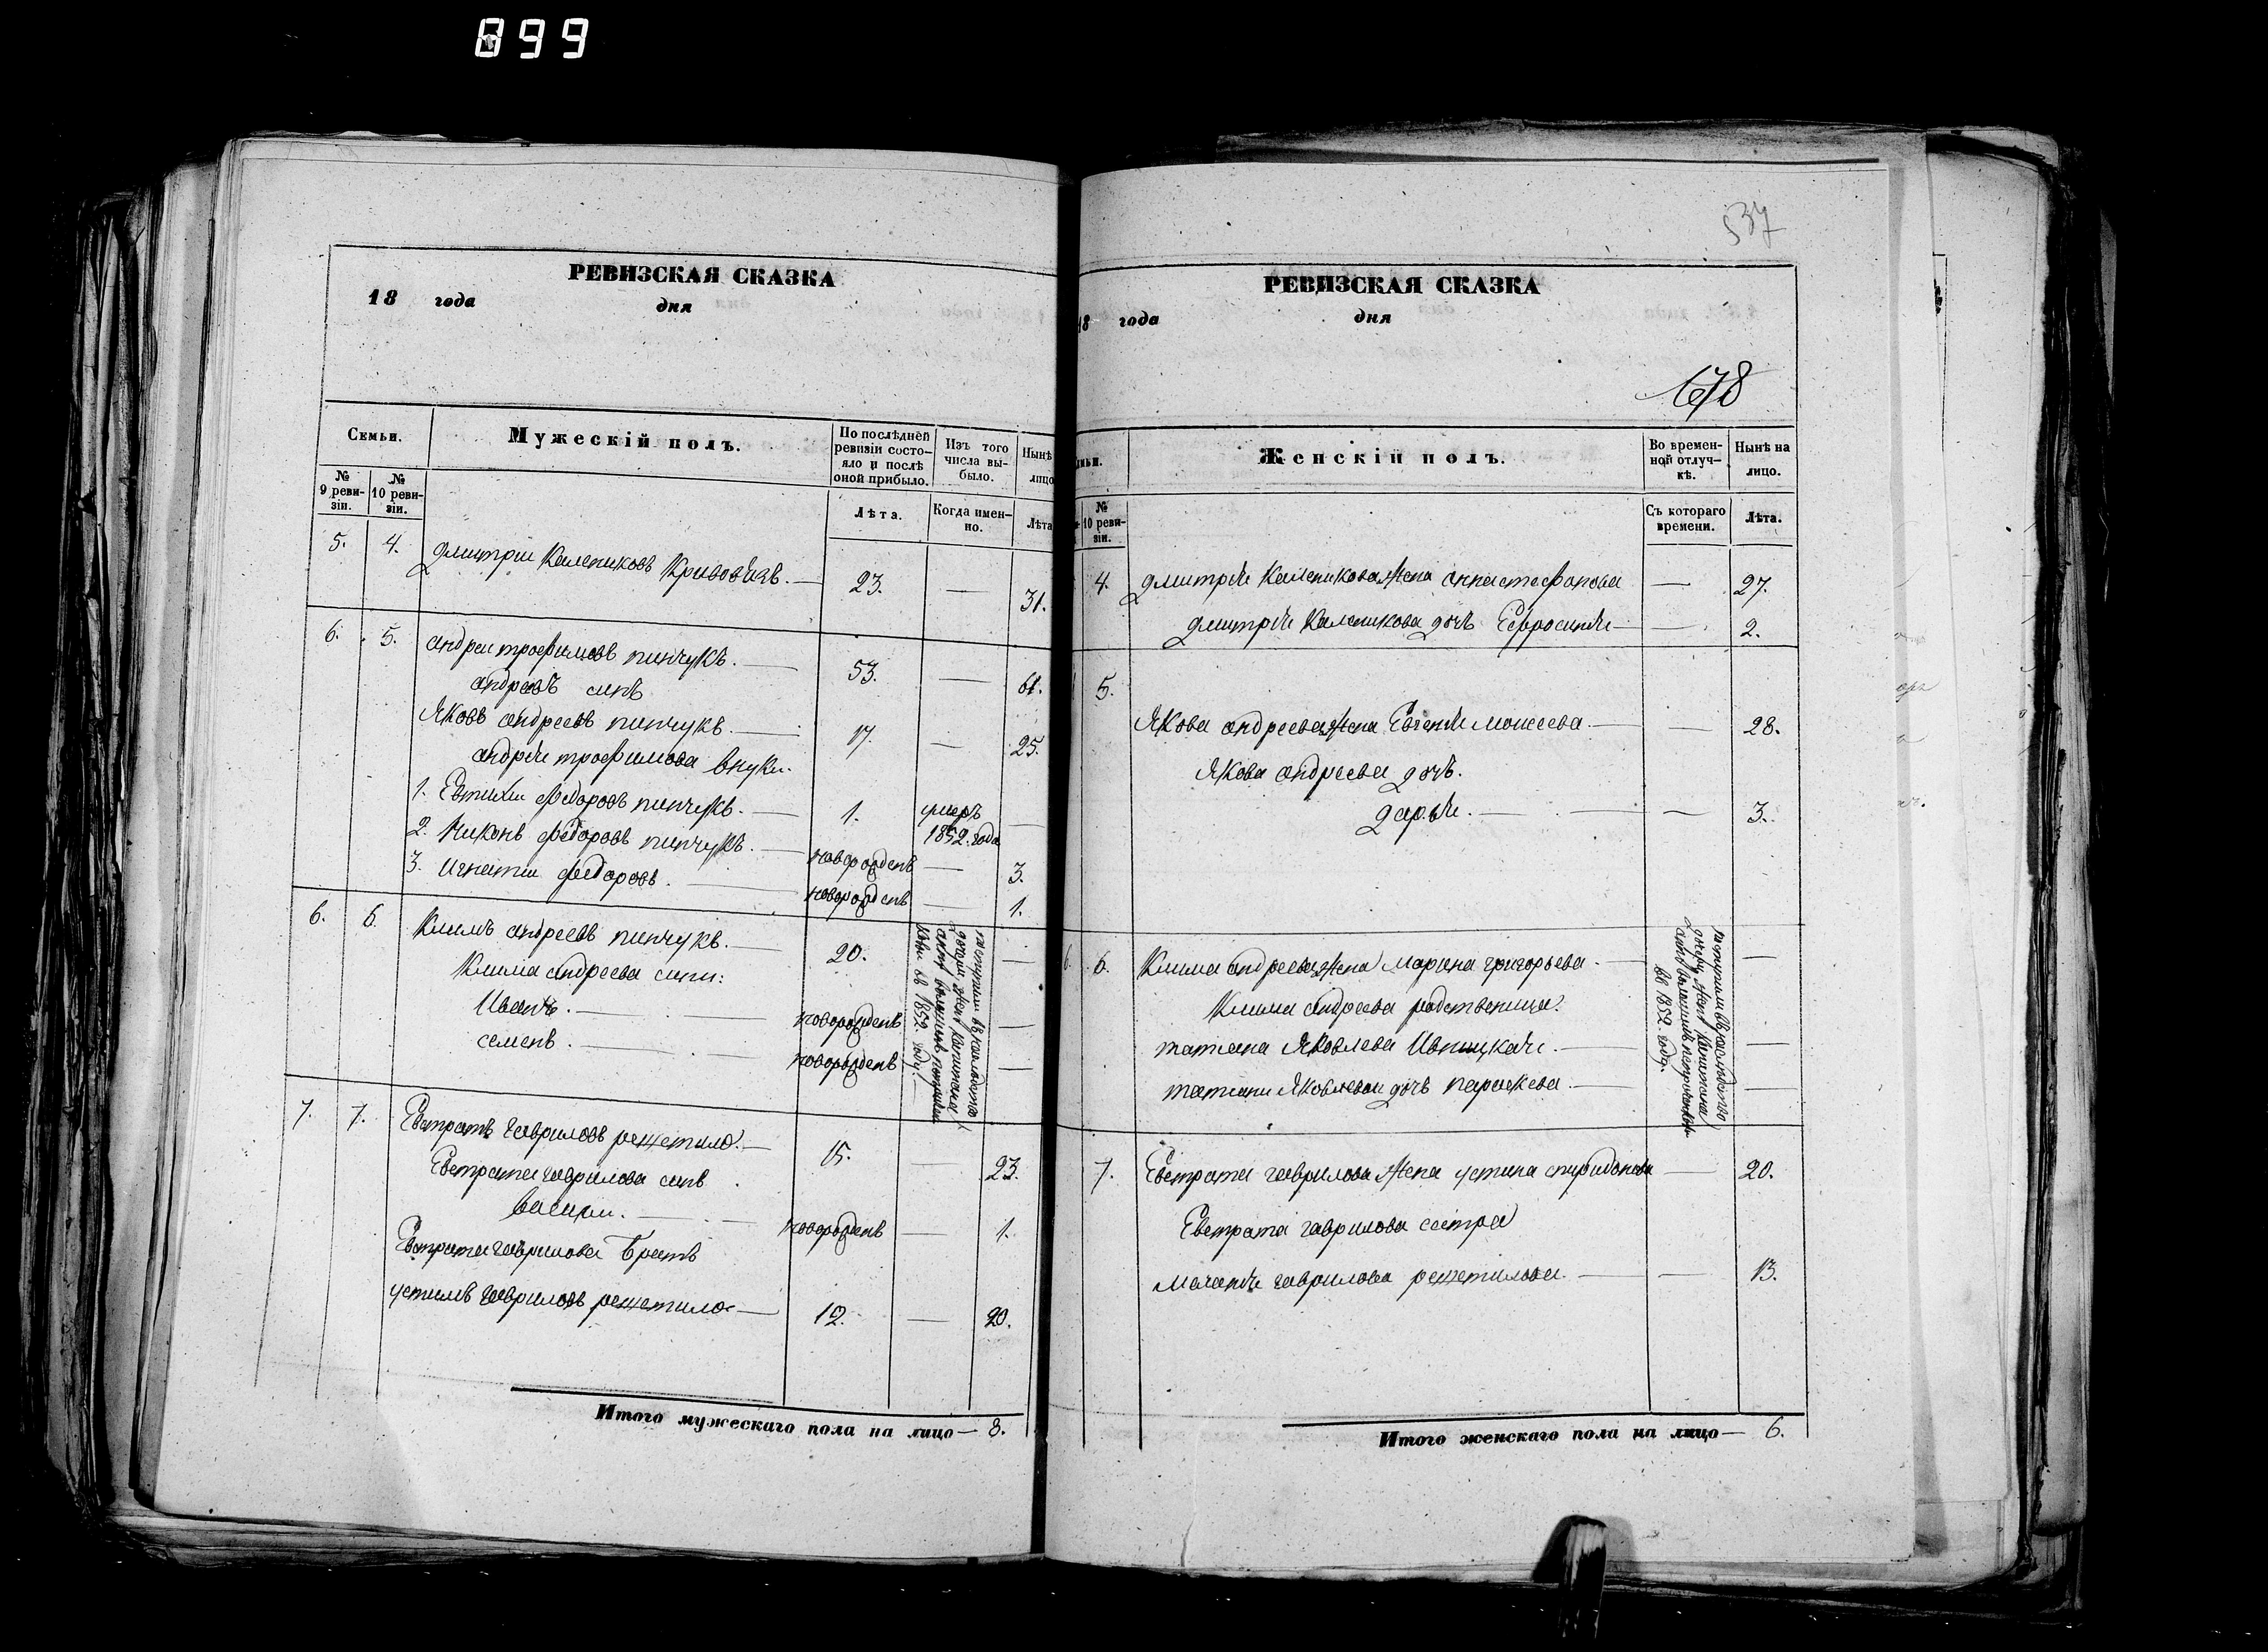 899
РЕВИЗСКАЯ СКАЗКА
18 года дня
Семьи.
Мужескій полъ.
По послѣдней ревизіи состояло и послѣ оной прибыло.
Изъ того числа выбыло.
Нынѣ лицо
№ 9 ревизіи.
№ 10 ревизіи.
Лѣта.
Когда именно.
Лѣта
5. 4. Дмитрии Калениковъ Кривов — 23. — 31.
6. 5. андреи трофимовъ пинчукъ. — 53. — 61.
андреевъ синъ
Яковъ андреевъ пинчукъ. — 17. — 25.
андрѣя трофимова внуки.
1. Евтихи федоровъ пинчукъ. — 1. умеръ 1852. года —
2. Никонъ федоровъ пинчукъ. — новорожденъ — 3.
3. Игнатии федоровъ. — новорожденъ — 1.
6. 6. Климъ андреевъ пинчукъ. — 20. —
Клима андреева сини:
Иванъ. — новорожденъ —
семенъ. — новорожденъ —
въ 1852. году.
7. 7. Евстратъ гавриловъ решетило. — 15. — 23.
Евстрата гаврилова синъ
василии. — новорожденъ — 1.
Евстрата гаврилова братъ
устимъ гавриловъ решетило — 12. — 20.
Итого мужескаго пола на лицо — 8.
537
РЕВИЗСКАЯ СКАЗКА
18 года дня
678
Женскій полъ.
Во временной отлучкѣ.
Нынѣ на лицо.
№ 10 ревизіи.
Съ котораго времени.
Лѣта.
4. Дмитрѣя Каленикова жена анна стефанова — 27.
Дмитрѣя Каленикова дочь Ефросинѣя — 2.
5.
Якова андреева жена Евгенѣя моисеева — 28.
Якова андреева дочь.
дарья. — — 3.
6. 6. Клима андреева жена Марина григорьева. —
Клима андреева родственица.
татиана Яковлева —
татиани Яковлевои дочь параскева. —
въ 1852. году.
7. Евстрата гаврилова жена устина спиридонова — 20.
Евстрата гаврилова сестра
маланѣя гаврилова решетилова. — — 13.
Итого женскаго пола на лицо — 6.